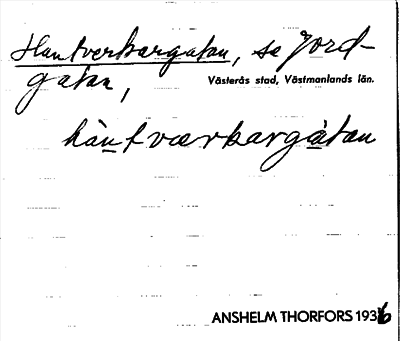 Hantverkargatan, se Jord-
gatan,
Västerås stad, Västmanlands län.
hàntværkargàtan
ANSHELM THORFORS 1936